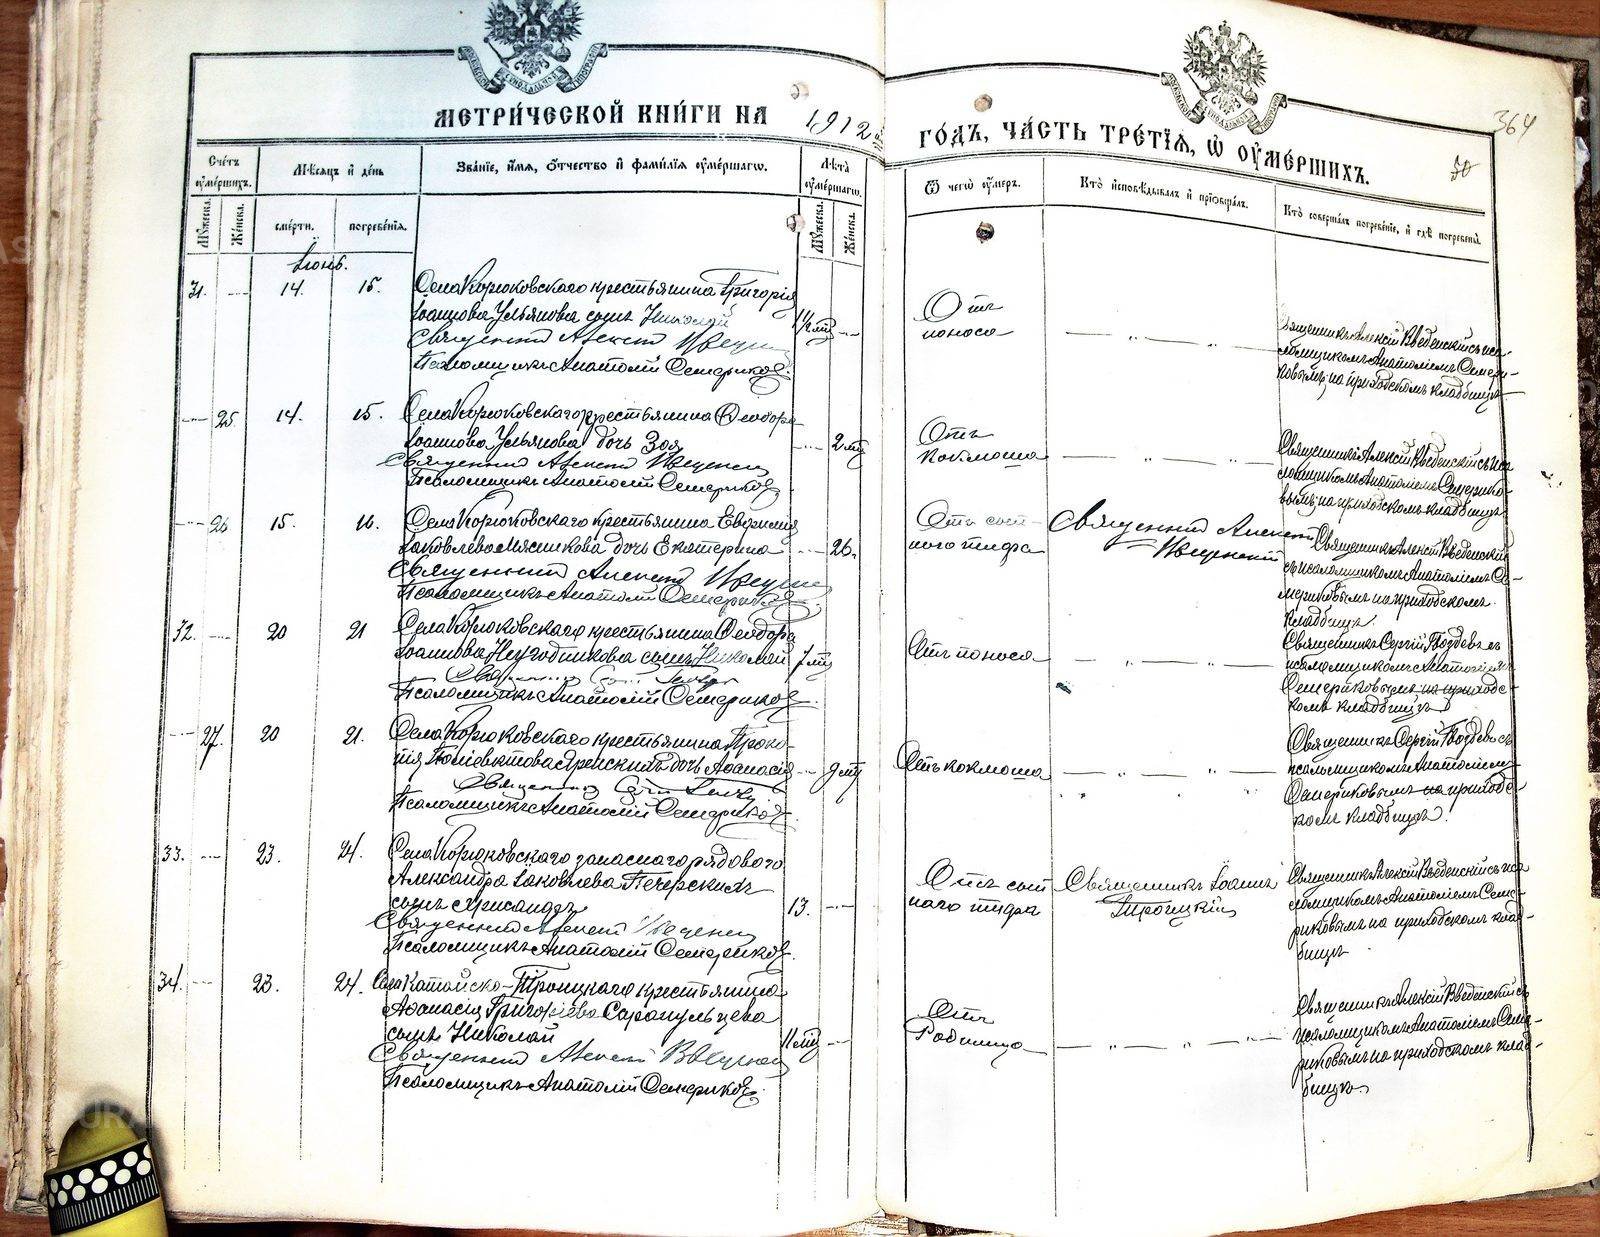 МЕТРИ́ЧЕСКОЙ КНИ́ГИ НА 1912
ГО́ДЪ, ЧА́СТЬ ТРЕ́ТІЯ, Ѡ ОУМЕ́РШИХЪ.
364
50
Сче́тъ оумершихъ.
Мѣсяцъ и день
Зва́ніе, имя, отчество и фамилія оумершагѡ.
Лѣта оумершагѡ.
Ѿ чегѡ оумеръ.
Кто исповѣдывалъ и пріобщалъ.
Кто совершалъ погребеніе, и гдѣ погребены.
Мужеска.
Женска.
смерти.
погребенія.
Мужеска.
Женска.
Іюнь.
31. 14. 15.
Села Корюковскаго крестьянина Григорія
Іоаннова Ульянова сынъ Николай
Священникъ Алексій Введенскій
Псаломщикъ Анатолій Семериковъ.
Отъ
поноса
Священникъ Алексій Введенскій съ пса-
ломщикомъ Анатоліемъ Семери-
ковымъ на приходскомъ кладбищѣ
25. 14. 15.
Села Корюковскаго крестьянина Ѳеодора
Іоаннова Ульянова дочь Зоя
2 мц
Священникъ Алексій Введенскій
Псаломщикъ Анатолій Семериковъ
Отъ
коклюша
Священникъ Алексій Введенскій съ пса
ломщикомъ Анатоліемъ Семерико-
вымъ на приходскомъ кладбищѣ
26 15. 16.
Села Корюковскаго крестьянина
Іаковлева Мясникова дочь Екатерина
26.
Священникъ Алексій
Псаломщикъ Анатолій Семериковъ
Отъ сып-
ного тифа
Священникъ Алексій
Введенскій
Священникъ Алексій Введенскій
съ псаломщикомъ Анатоліемъ Се-
мериковымъ на приходскомъ
кладбищѣ.
32. 20 21
Села Корюковскаго крестьянина Ѳеодора
Іоаннова сынъ Николай
7 мц
Псаломщикъ Анатолій Семериковъ.
Отъ поноса
Священникъ Сергій Гвоздевъ съ
псаломщикомъ Анатоліемъ
Семериковымъ на приходс-
комъ кладбищѣ
27. 20 21.
Села Корюковскаго крестьянина Проко-
пія Поліевктова Яренскихъ дочь Аѳанасія
9 мц
Священникъ
Псаломщикъ Анатолій Семериковъ.
Отъ коклюша
Священникъ Сергій Гвоздевъ съ
псаломщикомъ Анатоліемъ
Семериковымъ на приходс-
комъ кладбищѣ.
33. 23. 24.
Села Корюковскаго запаснаго рядового
Александра Іаковлева Печерскихъ
сынъ
13.
Священникъ Алексій Введенскій
Псаломщикъ Анатолій Семериковъ.
Отъ сып
наго тифа
Священникъ Іоаннъ
Троицкій
Священникъ Алексій Введенскій съ пса
ломщикомъ Анатоліемъ Семе-
риковымъ на приходскомъ клад-
бищѣ
34. 23. 24.
Села Катайско-Троицкаго крестьянина
Аѳанасія Григоріева Сарапульцева
сынъ Николай
11 мц
Священникъ Алексій Введенскій
Псаломщикъ Анатолій Семериковъ.
Отъ
Родимца
Священникъ Алексій Введенскій съ
псаломщикомъ Анатоліемъ Семе-
риковымъ на приходскомъ клад-
бищѣ.